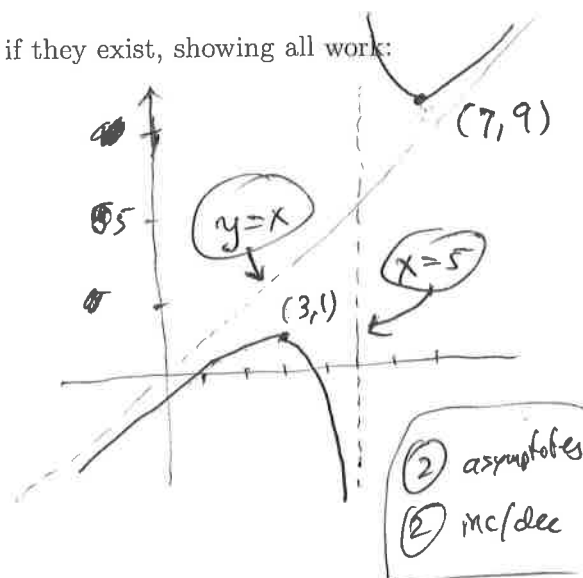 if they exist, showing all work:
(7, 9)
5
y=x
x=5
(3,1)
② asymptotes
② inc/dec